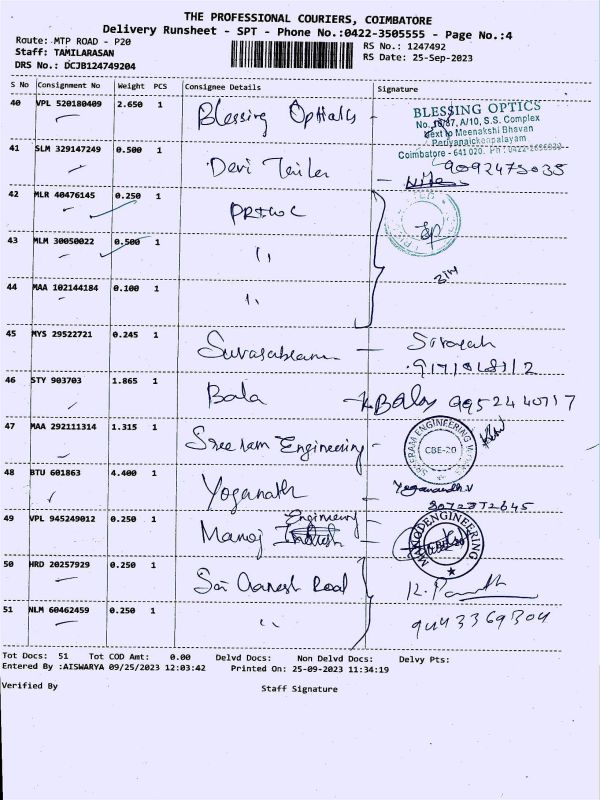 THE PROFESSIONAL COURIERS, COIMBATORE
Delivery Runsheet - SPT - Phone No.:0422-3505555 - Page No.:4
Route: MTP ROAD - P20
RS No.: 1247492
Staff: TAMILARASAN
RS Date: 25-Sep-2023
DRS No.: DCJB124749204
S No Consignment No Weight PCS Consignee Details Signature
40 VPL 520180409 2.650 1 Blessing Opticals -
BLESSING OPTICS
No. 16/37, A/10, S.S. Complex
Next to Meenakshi Bhavan
Periyanaickenpalayam
Coimbatore - 641 020.
41 SLM 329147249 0.500 1 Devi Tailer - 9092475035
42 MLR 40476145 0.250 1
43 MLM 30050022 0.500 1 ''
44 MAA 102144184 0.100 1 ''
45 MYS 29522721 0.245 1
46 STY 903703 1.865 1 Bala - K Balaj 9952440717
47 MAA 292111314 1.315 1 Sree ram Engineering -
SREERAM ENGINEERING WORKS
CBE-20
48 BTU 601863 4.400 1 Yoganath - Yoganandh.V
8072372645
49 VPL 945249012 0.250 1 Manoj Engineering
ENGINEERING
50 HRD 20257929 0.250 1 Sai Ganesh Road
51 NLM 60462459 0.250 1 '' 9443369304
Tot Docs: 51 Tot COD Amt: 0.00 Delvd Docs: Non Delvd Docs: Delvy Pts:
Entered By :AISWARYA 09/25/2023 12:03:42 Printed On: 25-09-2023 11:34:19
Verified By Staff Signature